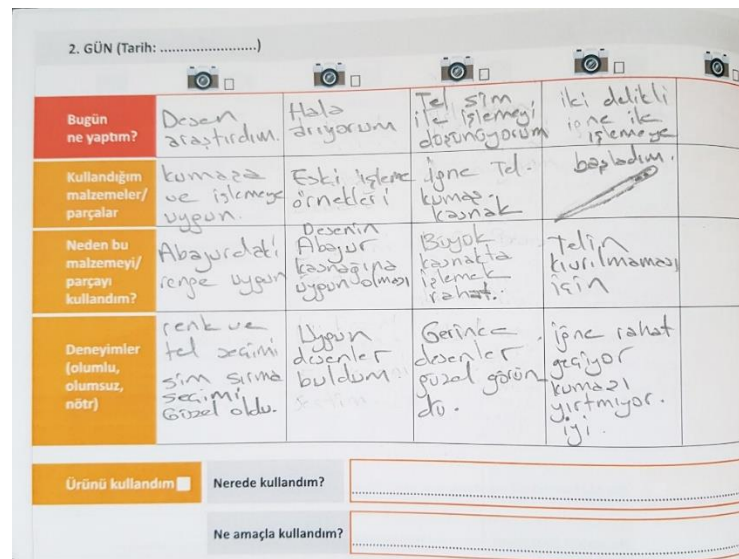 2. GÜN (Tarih: ........................)
Bugün
ne yaptım?
Desen
araştırdım.
Hala
arıyorum
Tel sim
ile işlemeyi
düşünüyorum
iki delikli
iğne ile
işlemeye
başladım.
Kullandığım
malzemeler/
parçalar
kumaşa
ve işlemeye
uygun.
Eski işleme
örnekleri
iğne Tel.
kumaş.
kasnak
Neden bu
malzemeyi/
parçayı
kullandım?
Abajurdaki
renge uygun
Desenin
Abajur
kasnağına
uygun olması
Büyük
kasnakta
işlemek
rahat.
Telin
kıvrılmaması
için
Deneyimler
(olumlu,
olumsuz,
nötr)
renk ve
tel seçimi
sim sırma
seçimi
Güzel oldu.
Uygun
desenler
buldum
Gerince
desenler
güzel görün
dü.
iğne rahat
geçiyor
kumaşı
yırtmıyor.
iyi.
Ürünü kullandım
Nerede kullandım?
Ne amaçla kullandım?